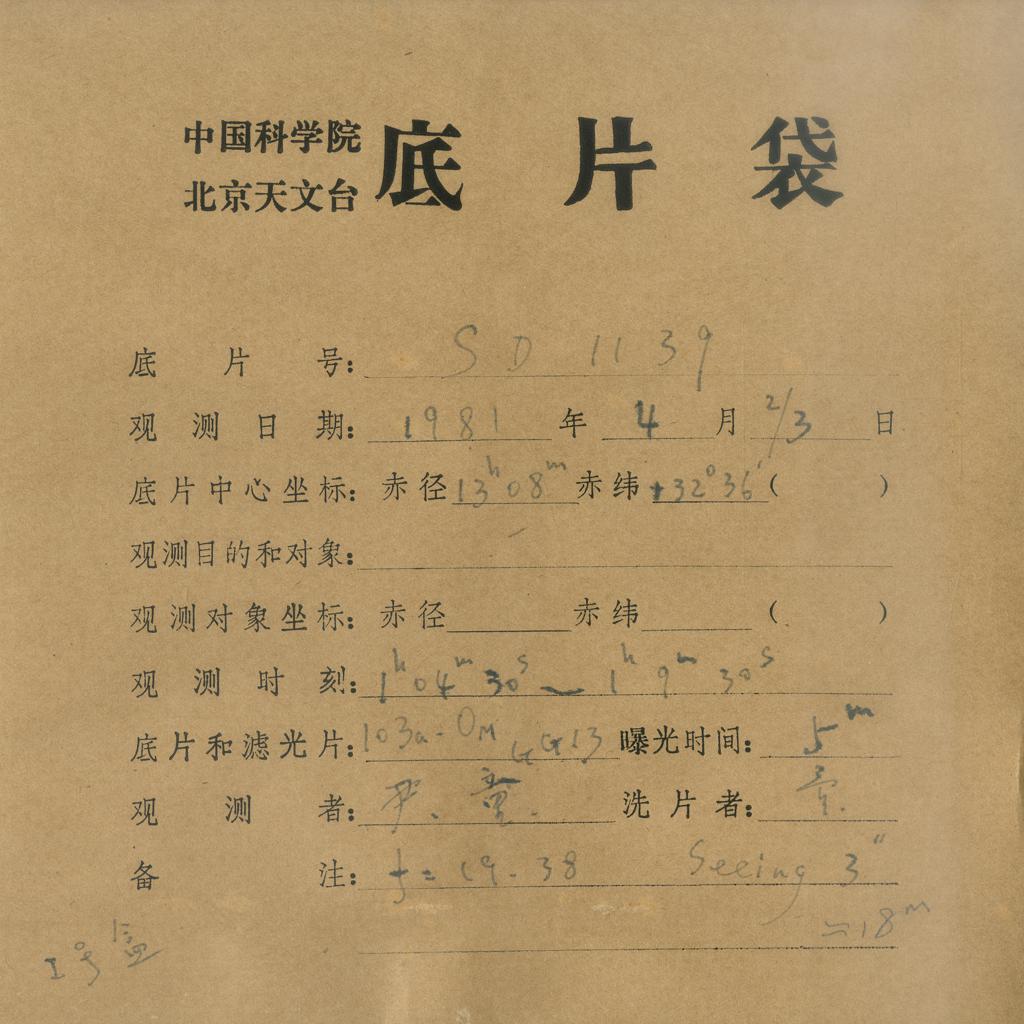 中国科学院
北京天文台
底片袋
底片号: SD 1139
观测日期: 1981 年 4 月 2/3 日
底片中心坐标: 赤径 13h08m 赤纬 +32°36′ ( )
观测目的和对象:
观测对象坐标: 赤径 赤纬 ( )
观测时刻: 1h04m30s ~ 1h9m30s
底片和滤光片: 103a-O GG13 曝光时间: 5m
观测者: 尹、童. 洗片者:
备注: f=19.38 Seeing 3″
≈18m
I号盒